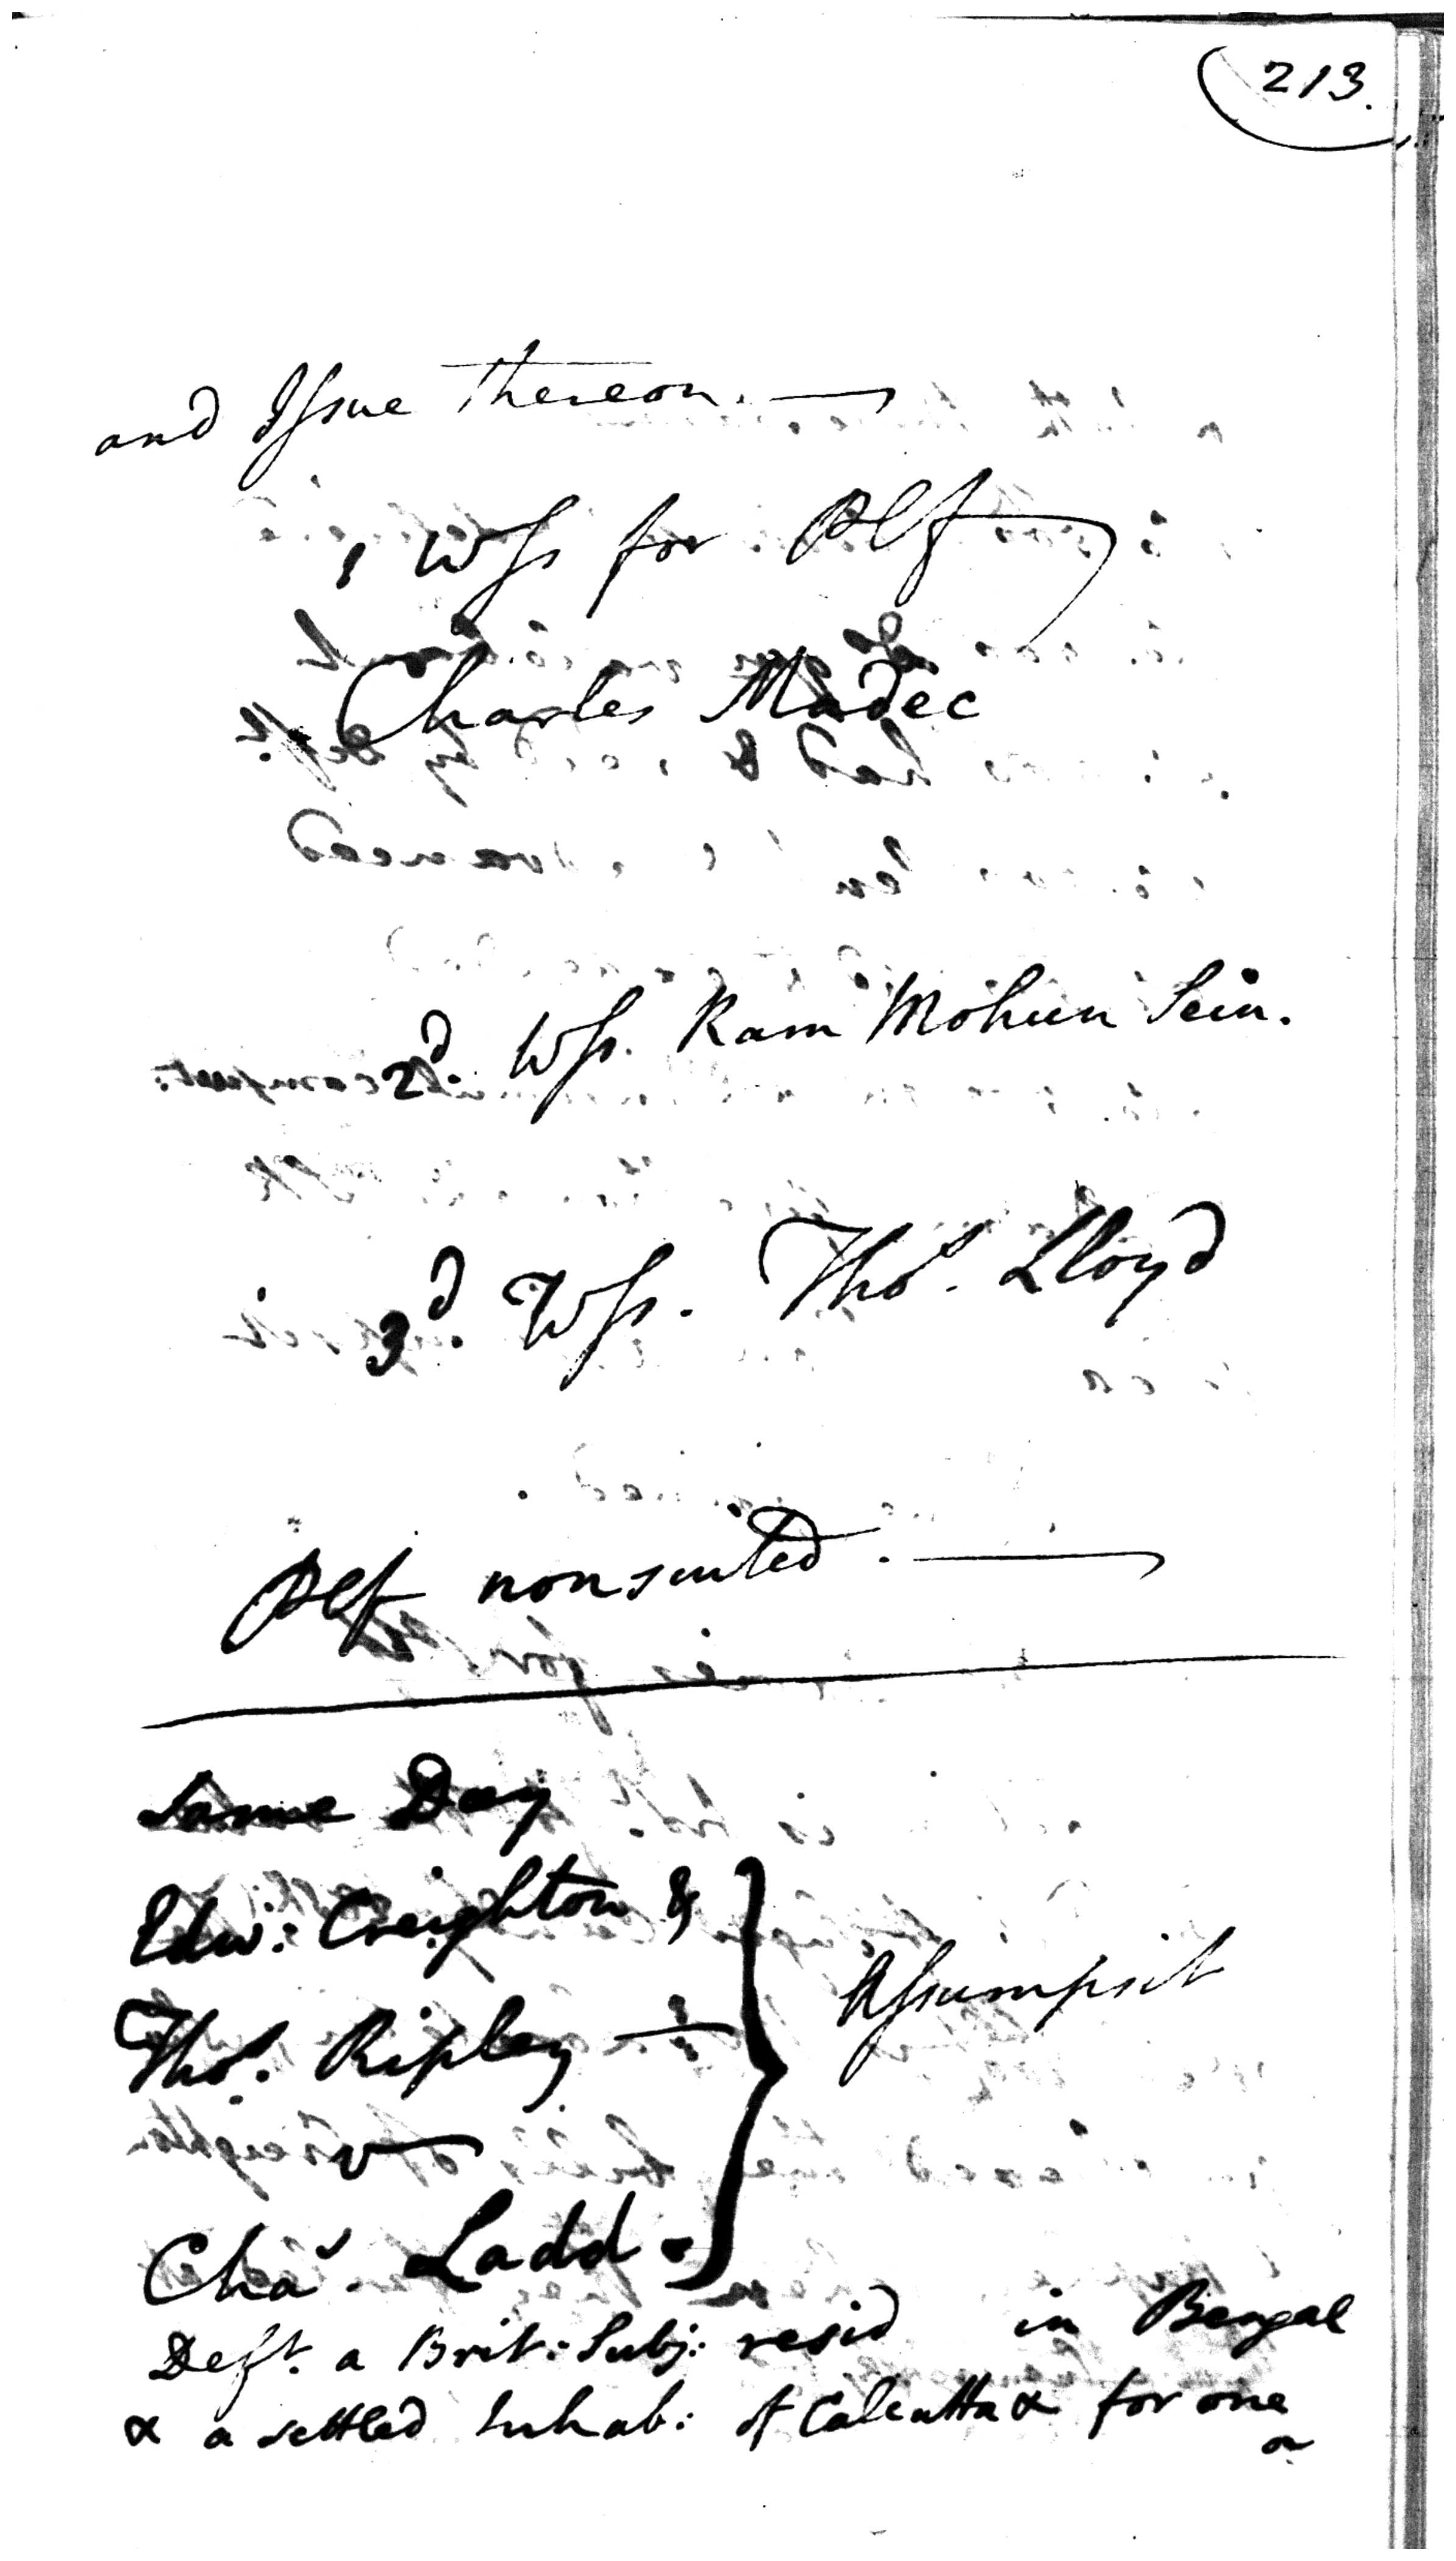 213.
and Issue thereon.
1 Wss for Plf
Charles Madec
2d. Wss. Ram Mohun Sein.
3d. Wss. Thos. Lloyd
Plf nonsuited.
Same Day
Edw: Creighton &
Thos. Ripley
v
Assumpsit
Chas. Ladd
Deft. a Brit: Subj: resid in Bengal
& a settled Inhab: of Calcutta & for one
a